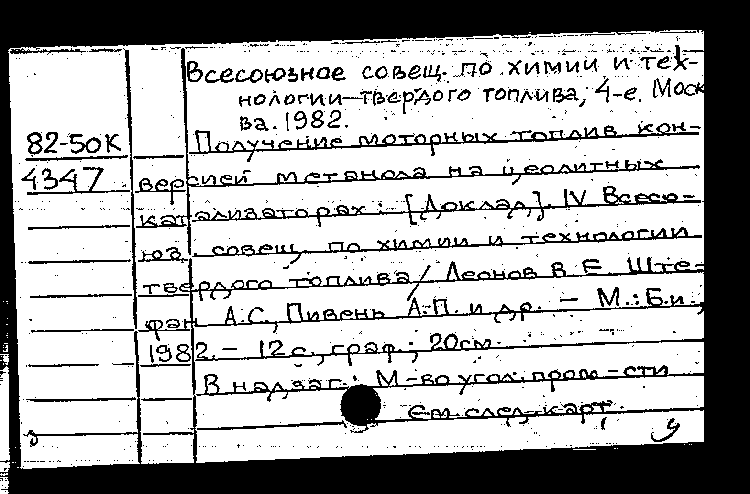 Всесоюзное совещ. по химии и тех-
нологии твердого топлива, 4-е. Моск
ва. 1982.
82-50К
Получение моторных топлив кон-
4347
версией метанола на цеолитных
катализаторах: [Доклад]. IV Всесо-
юз. совещ. по химии и технологии
твердого топлива/ Леонов В.Е. Ште-
фан А.С., Пивень А.П. и др. – М.: Б.и.,
1982. – 12 с., граф.; 20см.
В надзаг.: М-во угол. пром-сти
См. след. карт.